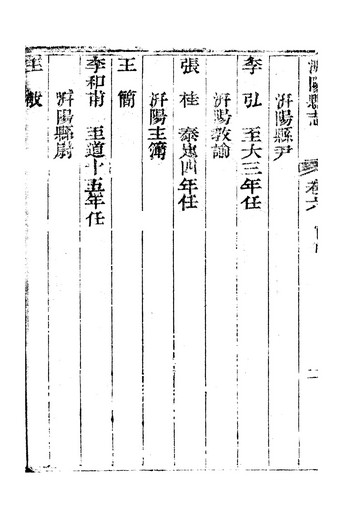 汧陽縣志 卷六
汧陽縣尹
李弘 至大三年任
汧陽教諭
張桂 泰定四年任
汧陽主簿
王簡
李和甫 至道十五年任
汧陽縣尉
王敏